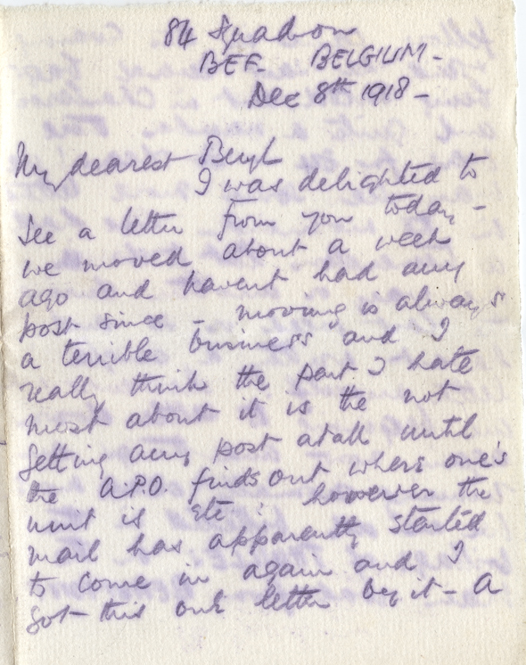 84 Squadron
BEF. BELGIUM -
Dec 8th 1918 -
My dearest Beryl
I was delighted to
see a letter from you today -
we moved about a week
ago and havent had any
post since - moving is always
a terrible business and I
really think the part I hate
most about it is the not
getting any post atall until
the A.P.O. finds out where one's
unit is etc: however the
mail has apparently started
to come in again and I
got this one letter by it - A